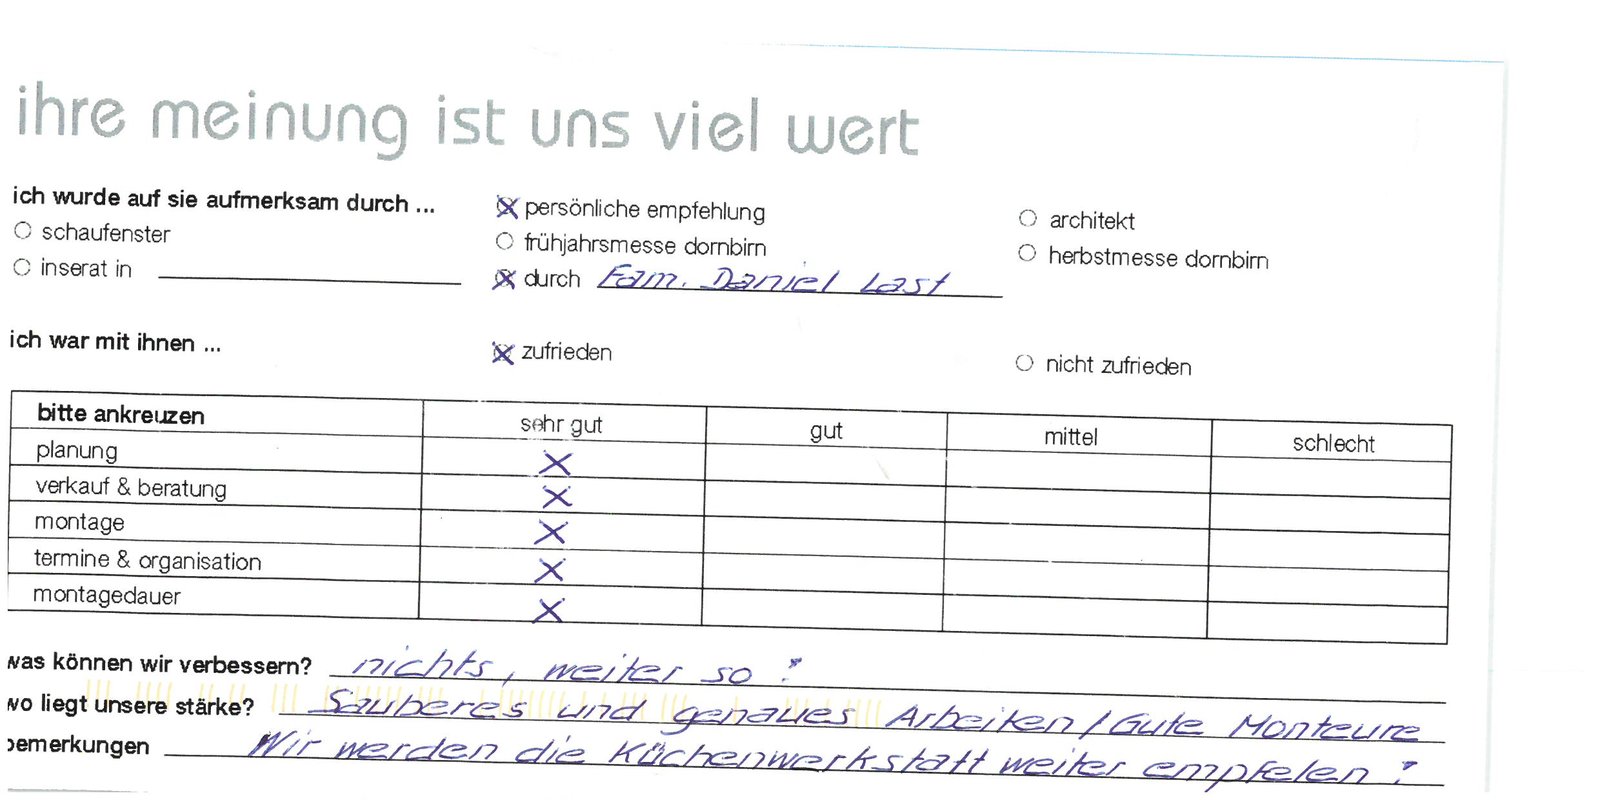 ihre meinung ist uns viel wert
ich wurde auf sie aufmerksam durch ... persönliche empfehlung architekt
schaufenster frühjahrsmesse dornbirn herbstmesse dornbirn
inserat in durch Fam. Daniel Last
ich war mit ihnen ... zufrieden nicht zufrieden
bitte ankreuzen sehr gut gut mittel schlecht
planung X
verkauf & beratung X
montage X
termine & organisation X
montagedauer X
was können wir verbessern? nichts, weiter so !
wo liegt unsere stärke? Sauberes und genaues Arbeiten / Gute Monteure
bemerkungen Wir werden die Küchenwerkstatt weiter empfelen !